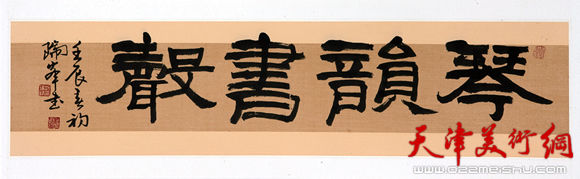 琴韻書聲
壬辰春初
瑞峯書
天津美術網
www.022meishu.com